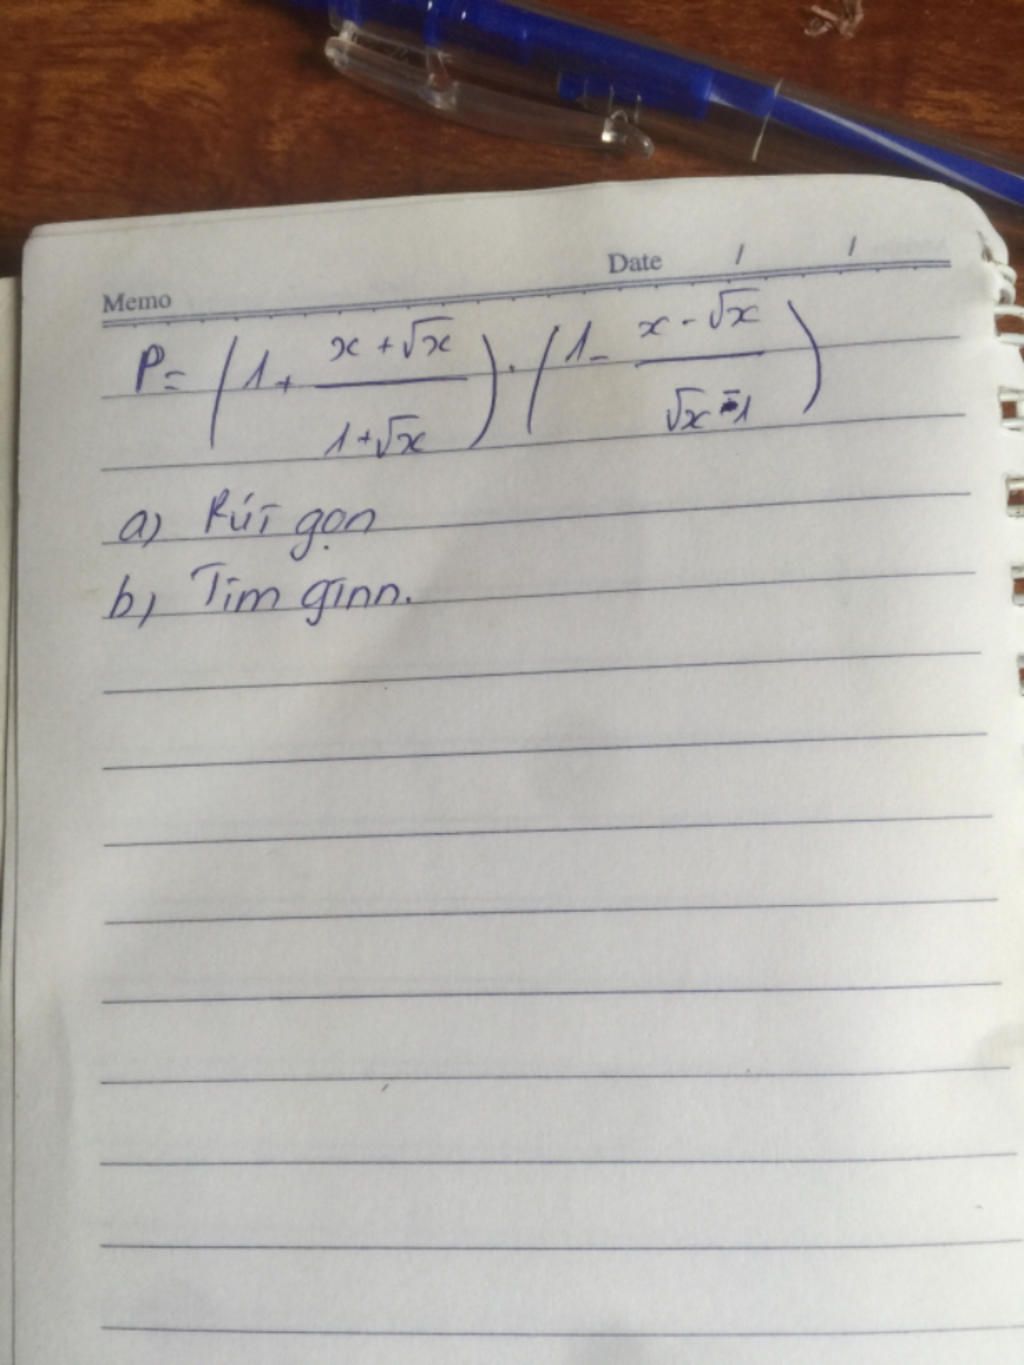 Memo Date / /
P = (1 + \frac{x + \sqrt{x}}{1 + \sqrt{x}}) . (1 - \frac{x - \sqrt{x}}{\sqrt{x} - 1})
a) Rút gọn
b) Tìm gtnn.